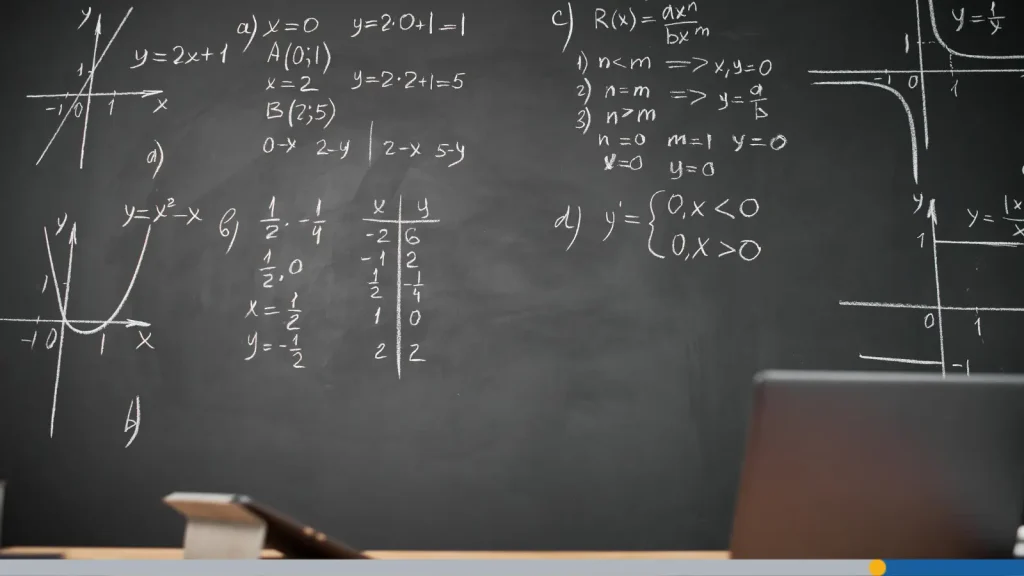 y
y=2x+1
1
-1 0 1 x
a)
a) x=0 y=2·0+1=1
A(0;1)
x=2 y=2·2+1=5
B(2;5)
0-x 2-y | 2-x 5-y
c) R(x)= axⁿ/bxᵐ
1) n<m => x,y=0
2) n=m => y=a/b
3) n>m
n=0 m=1 y=0
x=0 y=0
y=1/x
1
-1 0 1
y
y=x²-x
1
-1 0 1 x
b)
b) 1/2 · -1/4
1/2, 0
x=1/2
y=-1/2
x | y
-2 | 6
-1 | 2
1/2 | -1/4
1 | 0
2 | 2
d) y'={0, x<0
{0, x>0
y
1
0 1
-1